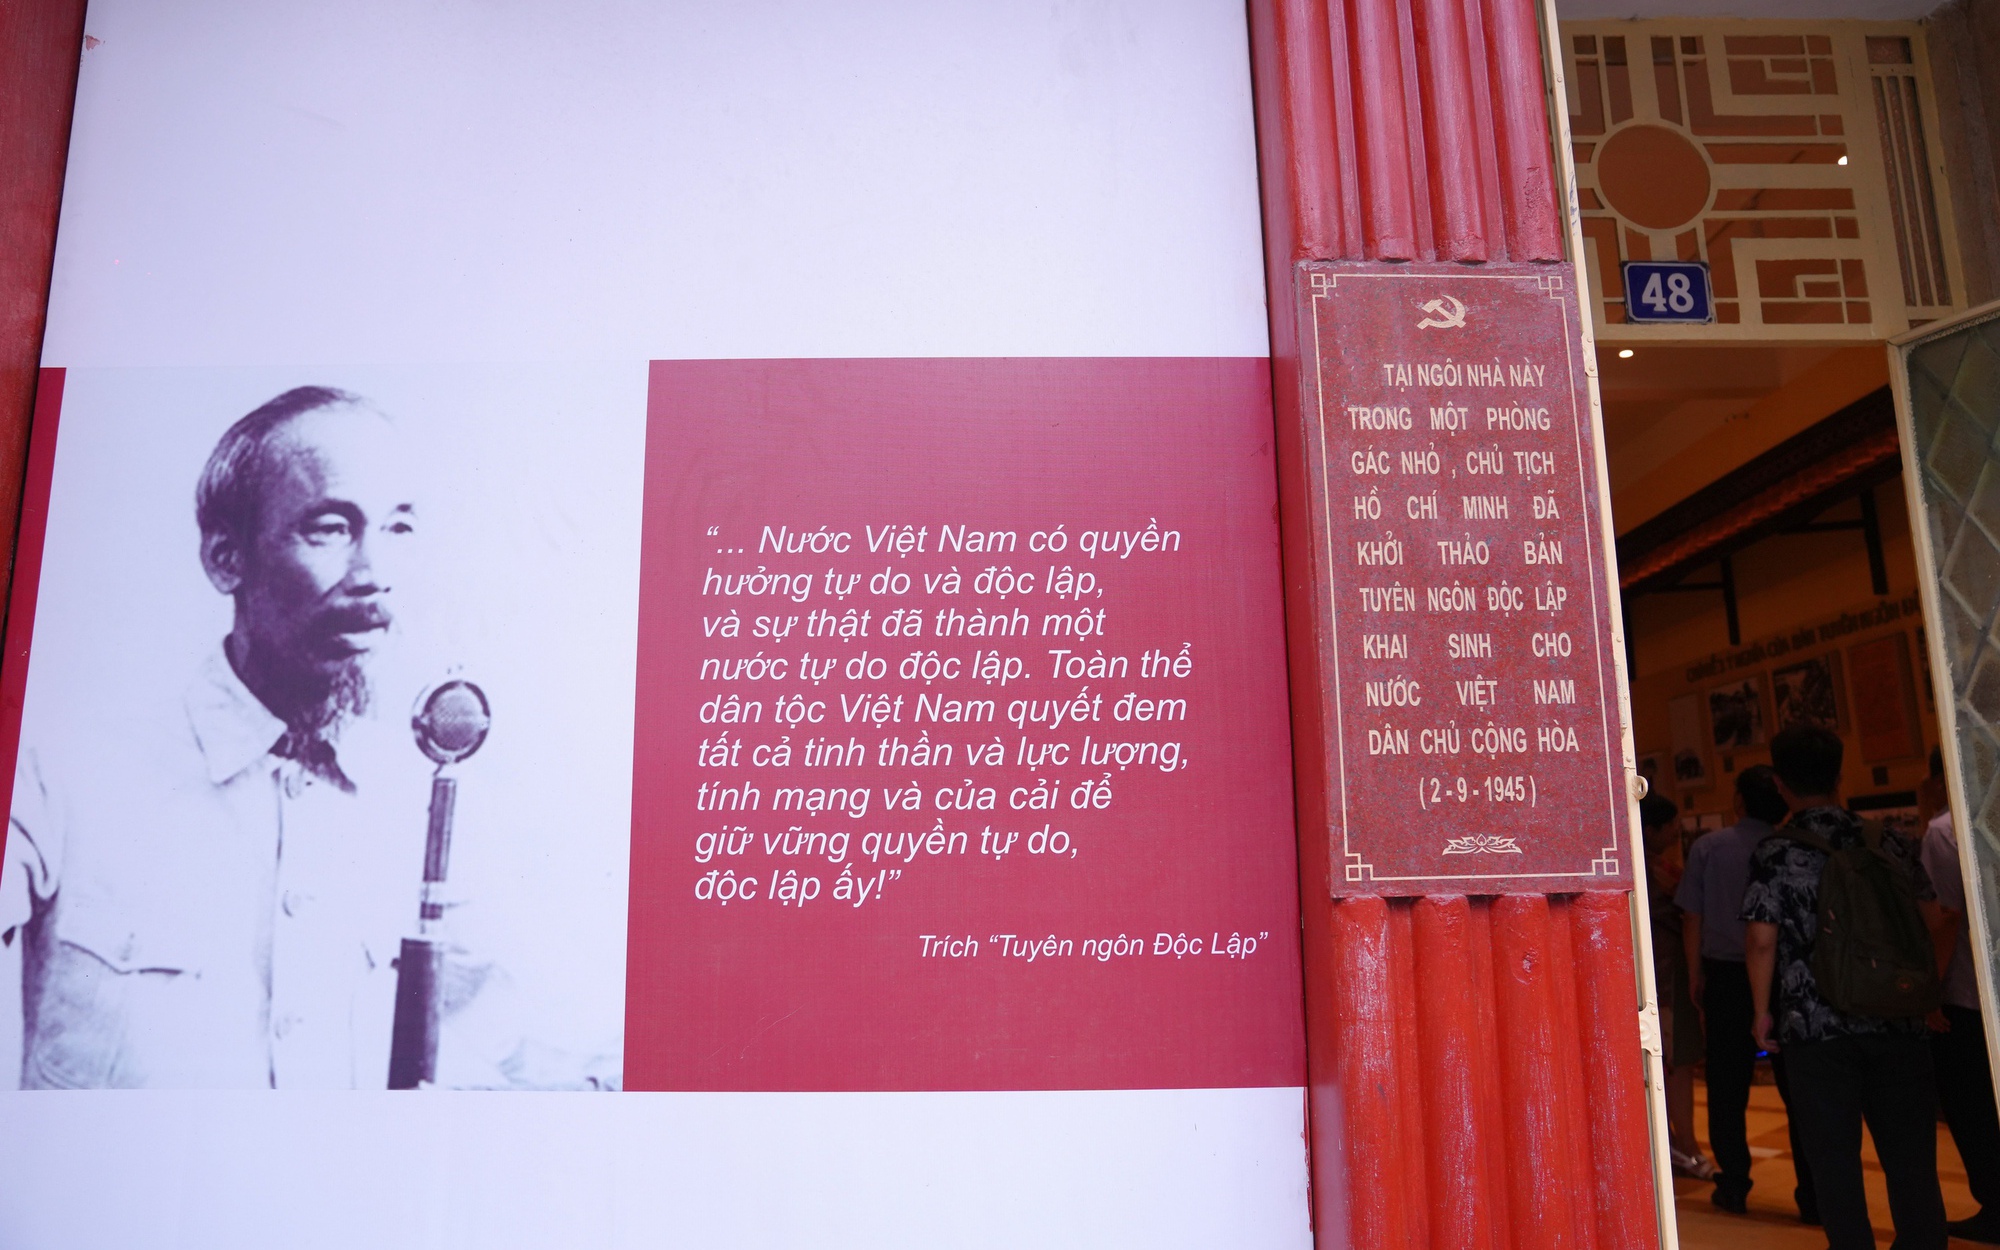 “... Nước Việt Nam có quyền
hưởng tự do và độc lập,
và sự thật đã thành một
nước tự do độc lập. Toàn thể
dân tộc Việt Nam quyết đem
tất cả tinh thần và lực lượng,
tính mạng và của cải để
giữ vững quyền tự do,
độc lập ấy!”
Trích “Tuyên ngôn Độc Lập”
TẠI NGÔI NHÀ NÀY
TRONG MỘT PHÒNG
GÁC NHỎ , CHỦ TỊCH
HỒ CHÍ MINH ĐÃ
KHỞI THẢO BẢN
TUYÊN NGÔN ĐỘC LẬP
KHAI SINH CHO
NƯỚC VIỆT NAM
DÂN CHỦ CỘNG HÒA
( 2 - 9 - 1945 )
48